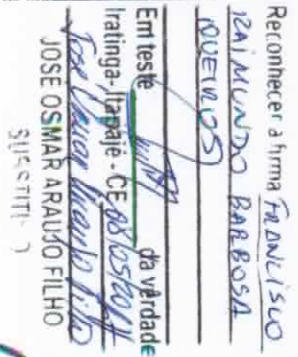 Reconhecer a firma FRANCISCO
RAIMUNDO BARBOSA
QUEIROS
Em teste da verdade
Iratinga-Itapajé-CE 08/05/2014
José Osmar Araujo Filho
JOSE OSMAR ARAUJO FILHO
SUBSTITU